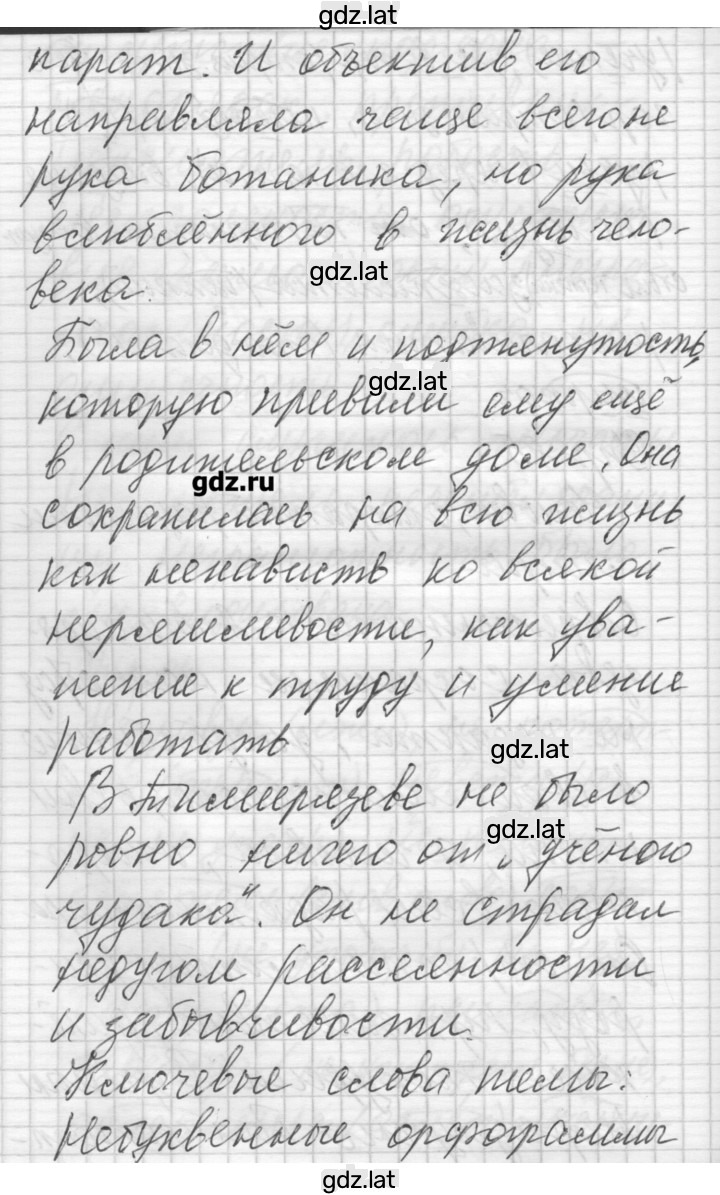 gdz.lat
парат. И объектив его
направляла чаще всего не
рука ботаника, но рука
влюблённого в жизнь чело-
века.
gdz.lat
Была в нём и подтянутость,
gdz.lat
которую привили ему ещё
в родительском доме. Она
gdz.ru
сохранилась на всю жизнь
как ненависть ко всякой
неряшливости, как ува-
жение к труду и умение
работать
gdz.lat
В Тимирязеве не было
gdz.lat
ровно ничего от „учёного
чудака“. Он не страдал
недугом рассеянности
и забывчивости.
Ключевые слова темы:
Небуквенные орфограммы
gdz.lat